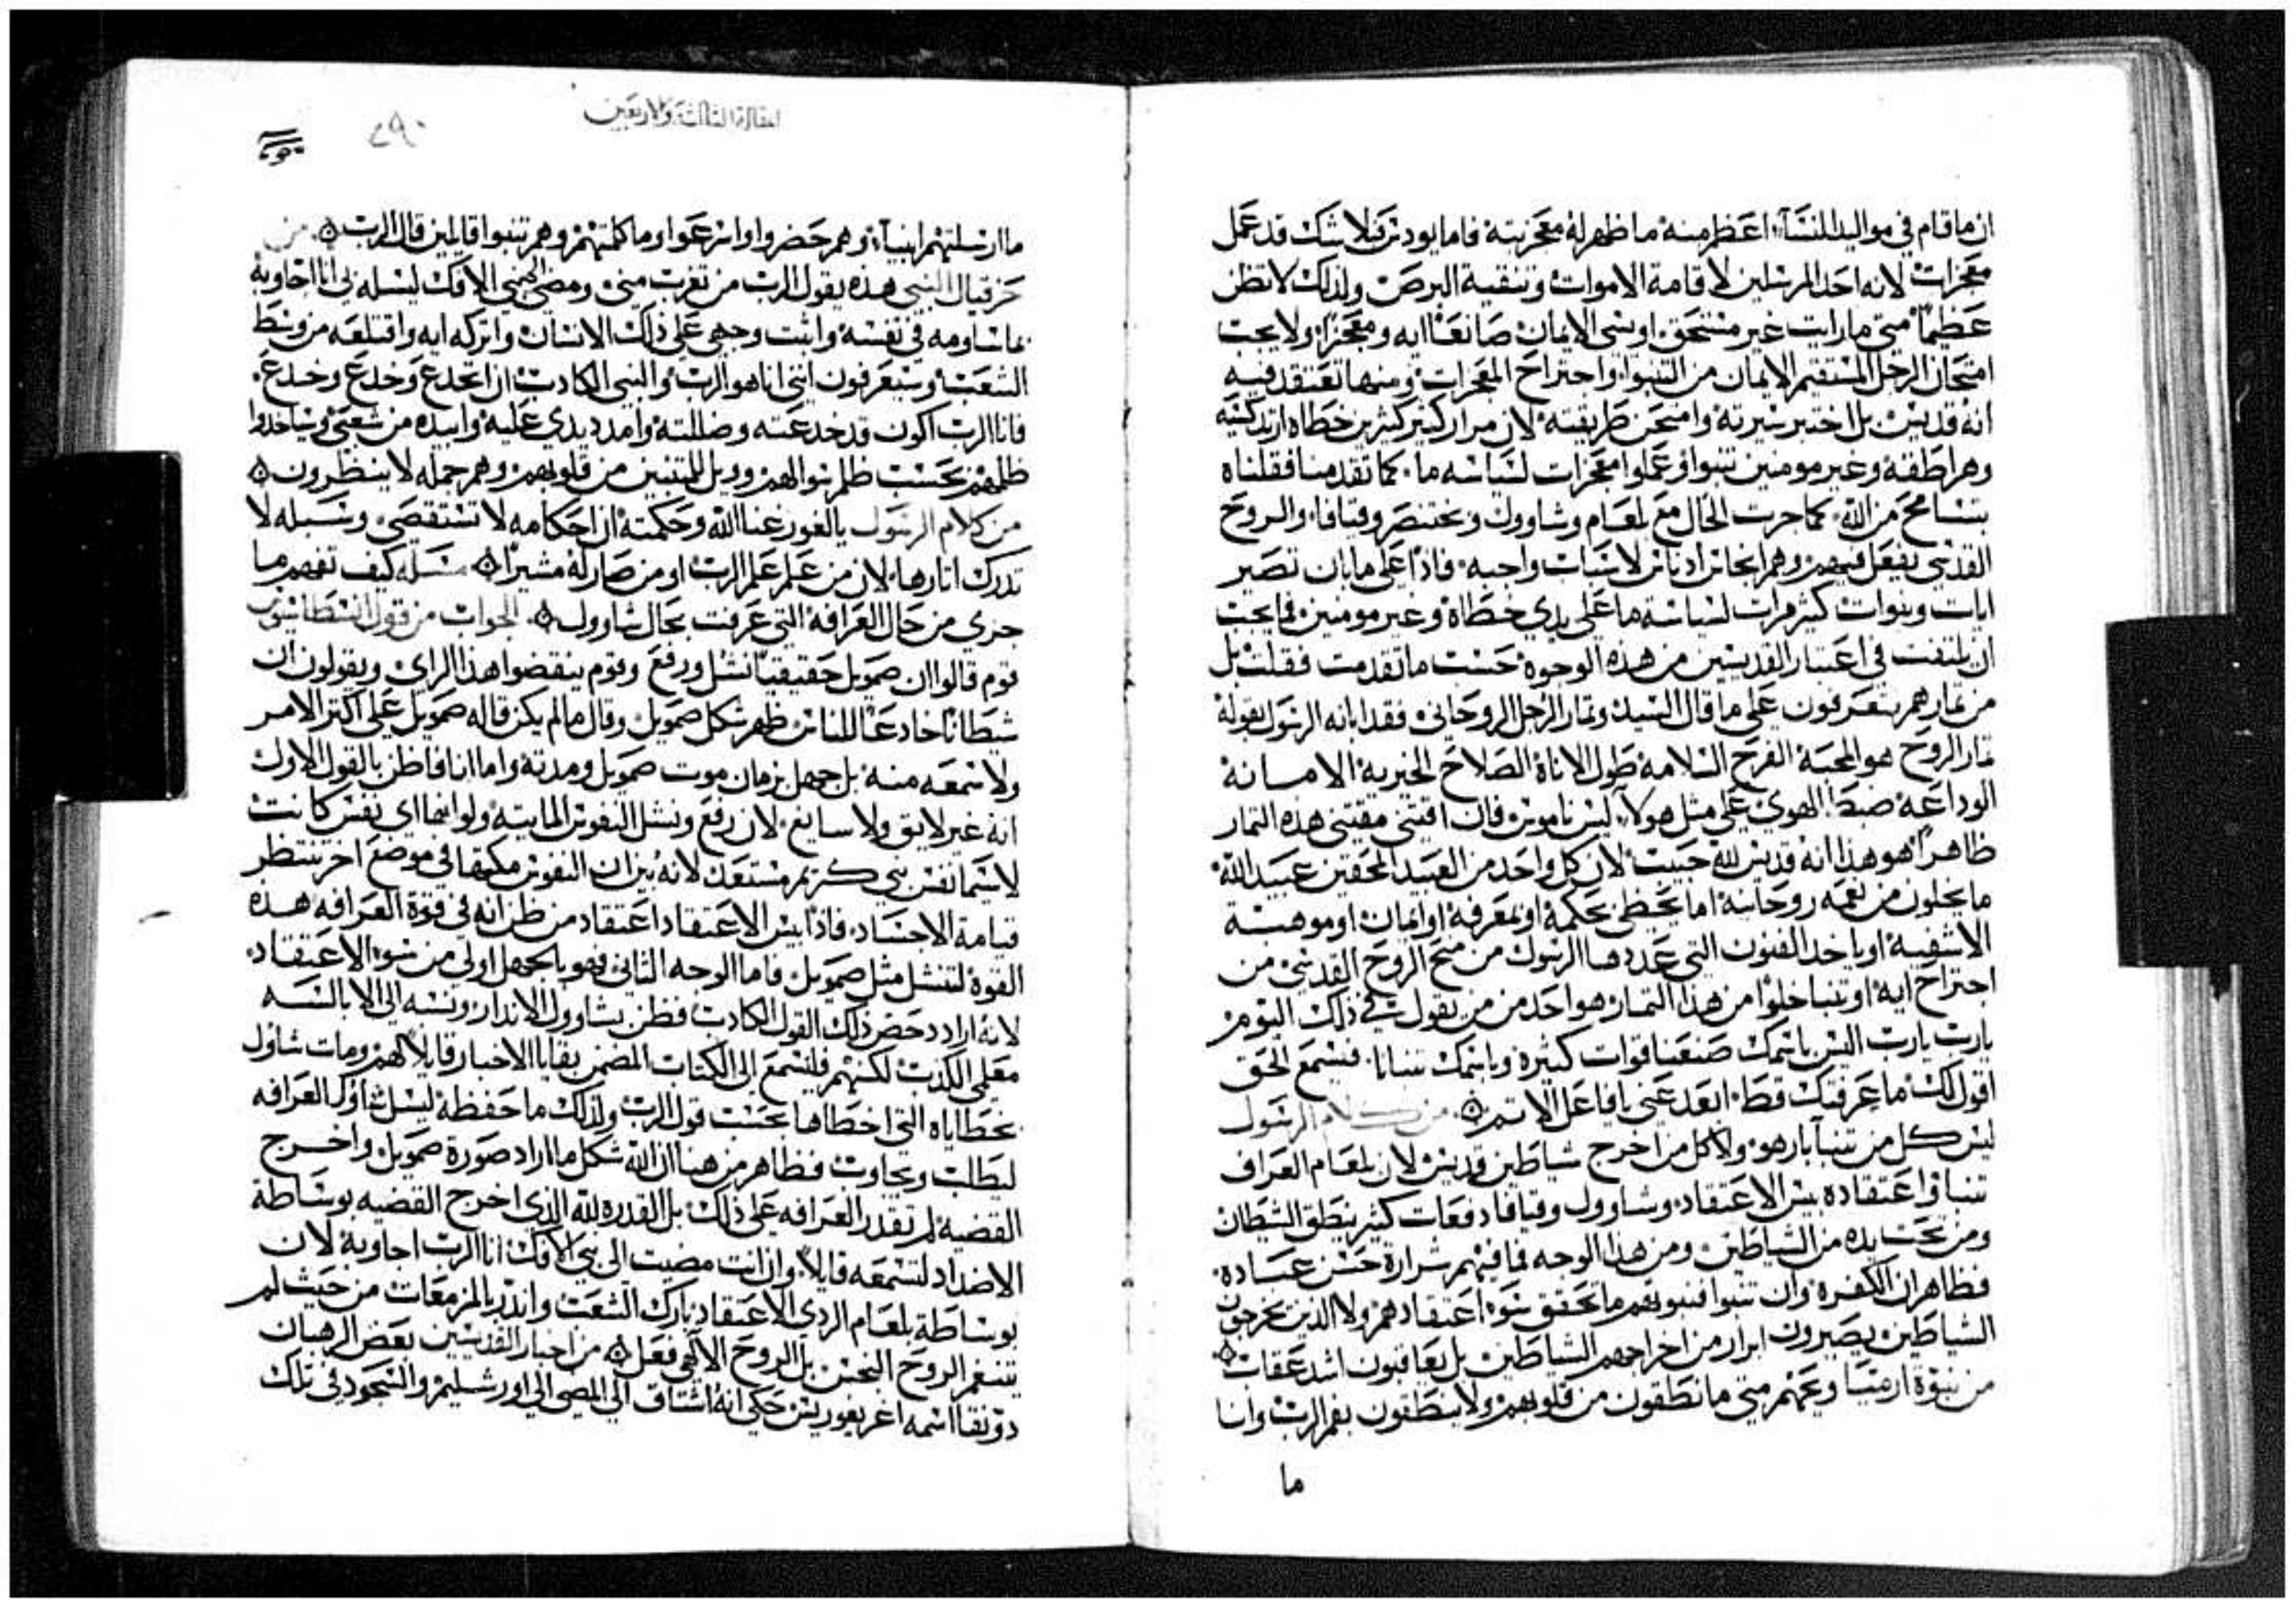 ان ما قام في مواليد النسآء اعظم منه ما ظهر له معجزيته فاما يودس فلا شك قد عمل
معجزات لانه احد المرسلين لاقامة الاموات وتنقية البرص ولذلك لا تظن
عظيماً متى ما رايت غير مستحق اوسى الايمان صانعًا ايه ومعجزًا ولا يجب
امتحان الرجل المستقيم الايمان من التنبوا واجتراح المعجزات ومنها تعتقد فيه
انه قديس بل اختبر سيرته وامتحن طريقته لان مرار كثير كثيرين خطاه
وهراطقه وغير مومنين تنبوا وعملوا معجزات لسياسه ما كما تقدمنا فقلناه
بتسامح من الله كما جرت الحال مع بلعام وشاوول وبختنصر وقيافا والروح
القدس يفعل فيهم وهم انجاس ادناس لاسباب واجبه فاذًا على ما بان تصير
ايات ونبوات كثير مرات لسياسة ما على يدي خطاة وغير مومنين فما يجب
ان يلتفت في اعتبار القديسين من هذه الوجوه حسب ما تقدمت فقلت بل
من ثمارهم تتعرفون على ما قال السيد وثمار الرجل الروحاني فقد ابانه الرسول بقوله
ثمار الروح هو المحبة الفرح السلامة طول الاناة الصلاح الخيرية الامانة
الوداعة ضبط الهوى على مثل هولاء ليس ناموس فان اقتنى مقتني هذه الثمار
ظاهرًا هو هذا انه قديس لله حبيب لان كل واحد من العبيد المحقين عبيد الله
ما يخلون من نعمه روحانية اما يحظى بحكمة او بمعرفة او ايمان او موهبة
الاشفية او ياخد الفنون التي عددها الرسول من منح الروح القدس من
اجتراح اية او تنبا خلوا من هذا الثمار هو احد من من يقول في ذلك اليوم
يارب يارب اليس باسمك صنعنا قوات كثيرة وباسمك تنبانا فيسمع الحق
اقول لك ما عرفتك قط ابعد عني يا فاعل الاثم من كلام الرسول
ليس كل من تنبآ بار هو ولا كل من اخرج شياطين قديس لان بلعام العراف
تنبا واعتقاده بيس الاعتقاد وشاوول وقيافا دفعات كثير ينطق الشيطان
ومن تحت يده من الشياطين ومن هذا الوجه فما فيهم شرارة حسن عبادة
فظاهر ان الكفرة وان تنبوا فنبوتهم ما تحقق سوء اعتقادهم ولا الذين يخرجون
الشياطين يصيرون ابرار من اخراجهم الشياطين بل يعاقبون اشد عقاب
من نبوة ارميا وعمهم متى ما نطقون من قلوبهم ولا ينطقون بفم الرب وانا
ما
المقالة الثالثة والاربعين
٤٩٠
ما ارسلتهم انبياء وهم حضروا وانزعوا وما كلمتهم وهم تنبوا قايلين قال الرب من
حزقيال النبي هذه يقول الرب من تغرب مني ومضى الى نبي الافك ليسله بي انا اجاوبه
بما ساومه في نفسه واثبت وجهي على ذلك الانسان واتركه ايه واقتلعه من وسط
الشعب وستعرفون انني انا هو الرب والنبي الكادب ان اتخدع وخدع وخدع
فانا الرب اكون قد خدعته وضللته وامدد يدي عليه وابيده من شعبي وياخدوا
ظلمهم بحسب ظلم سوالهم وويل للمتنبين من قلوبهم وهم جمله لا ينظرون
من كلام الرسول يا لغور غنا الله وحكمته ان احكامه لا تستقصى وسبله لا
تدرك اثارها لان من علم علم الرب او من صار له مشيرًا مسله كيف تفهم ما
جرى من حال العرافه التي عرفت بحال شاوول الجواب من قول
قوم قالوا ان صمويل حقيقيًا نشل ورفع وقوم ينقضوا هذا الراي ويقولون ان
شيطانًا خادعًا للناس ظهر شكل صمويل وقال ما لم يكن قاله صمويل على اكثر الامر
ولا سمعه منه بل جهل زمان موت صمويل ومدته واما انا فاظن بالقول الاول
انه غير لايق ولا سايغ لان رفع ونشل النفوس المايته ولو انها اي نفس كانت
لا سيما نفس نبي كريم مستعد لانه بين ان النفوس مكمها في موضع اخر تنتظر
قيامة الاجساد فاذًا بيس الاعتقاد اعتقاد من ظن انه في قوة العرافه هذه
القوة لتنشل مثل صمويل فاما الوجه الثاني فهو بالجهل اولى من سوء الاعتقاد
لانه اراد دحض ذلك القول الكادب فظن بشاوول الاندار ونسبه الى الابالسه
معلمي الكذب لكنهم فليسمع الى الكتاب المضمن بقايا الاخبار قايلًا لهم ومات شاول
بخطاياه التي اخطاها بحسب قول الرب ولذلك ما حفظه ليسل شاول العرافه
ليطلب وتجاوب فظاهر من هنا ان الله شكل ما اراد صورة صمويل واخرج
القضيه لم تقدر العرافه على ذلك بل القدره لله الذي اخرج القضيه بوساطة
الاضداد لتسمعه قايلًا وان انت مضيت الى نبي الافك انا الرب اجاوبه لان
بوساطة بلعام الردي الاعتقاد بارك الشعب واندر بالمزمعات من حيث لم
يتنغم الروح النجس بل الروح الالهي فعل من اخبار القديسين بعض الرهبان
دو نقا اسمه اغريغوريس حكي انه اشتاق الى المضي الى اورشليم والسجود في تلك